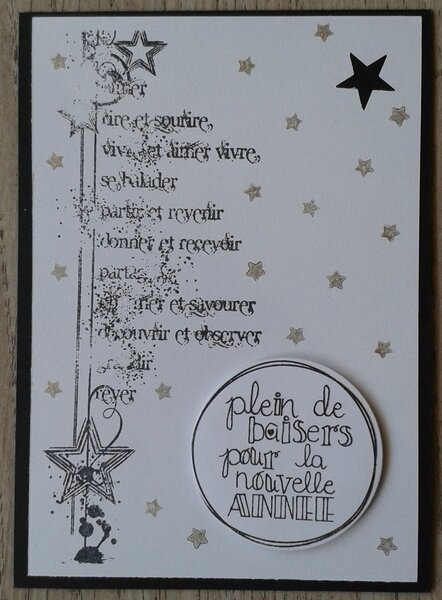 rire et sourire,
vivre et aimer vivre,
se balader
partir et revenir
donner et recevoir
et savourer
découvrir et observer
rever
plein de
baisers
pour la
nouvelle
ANNEE